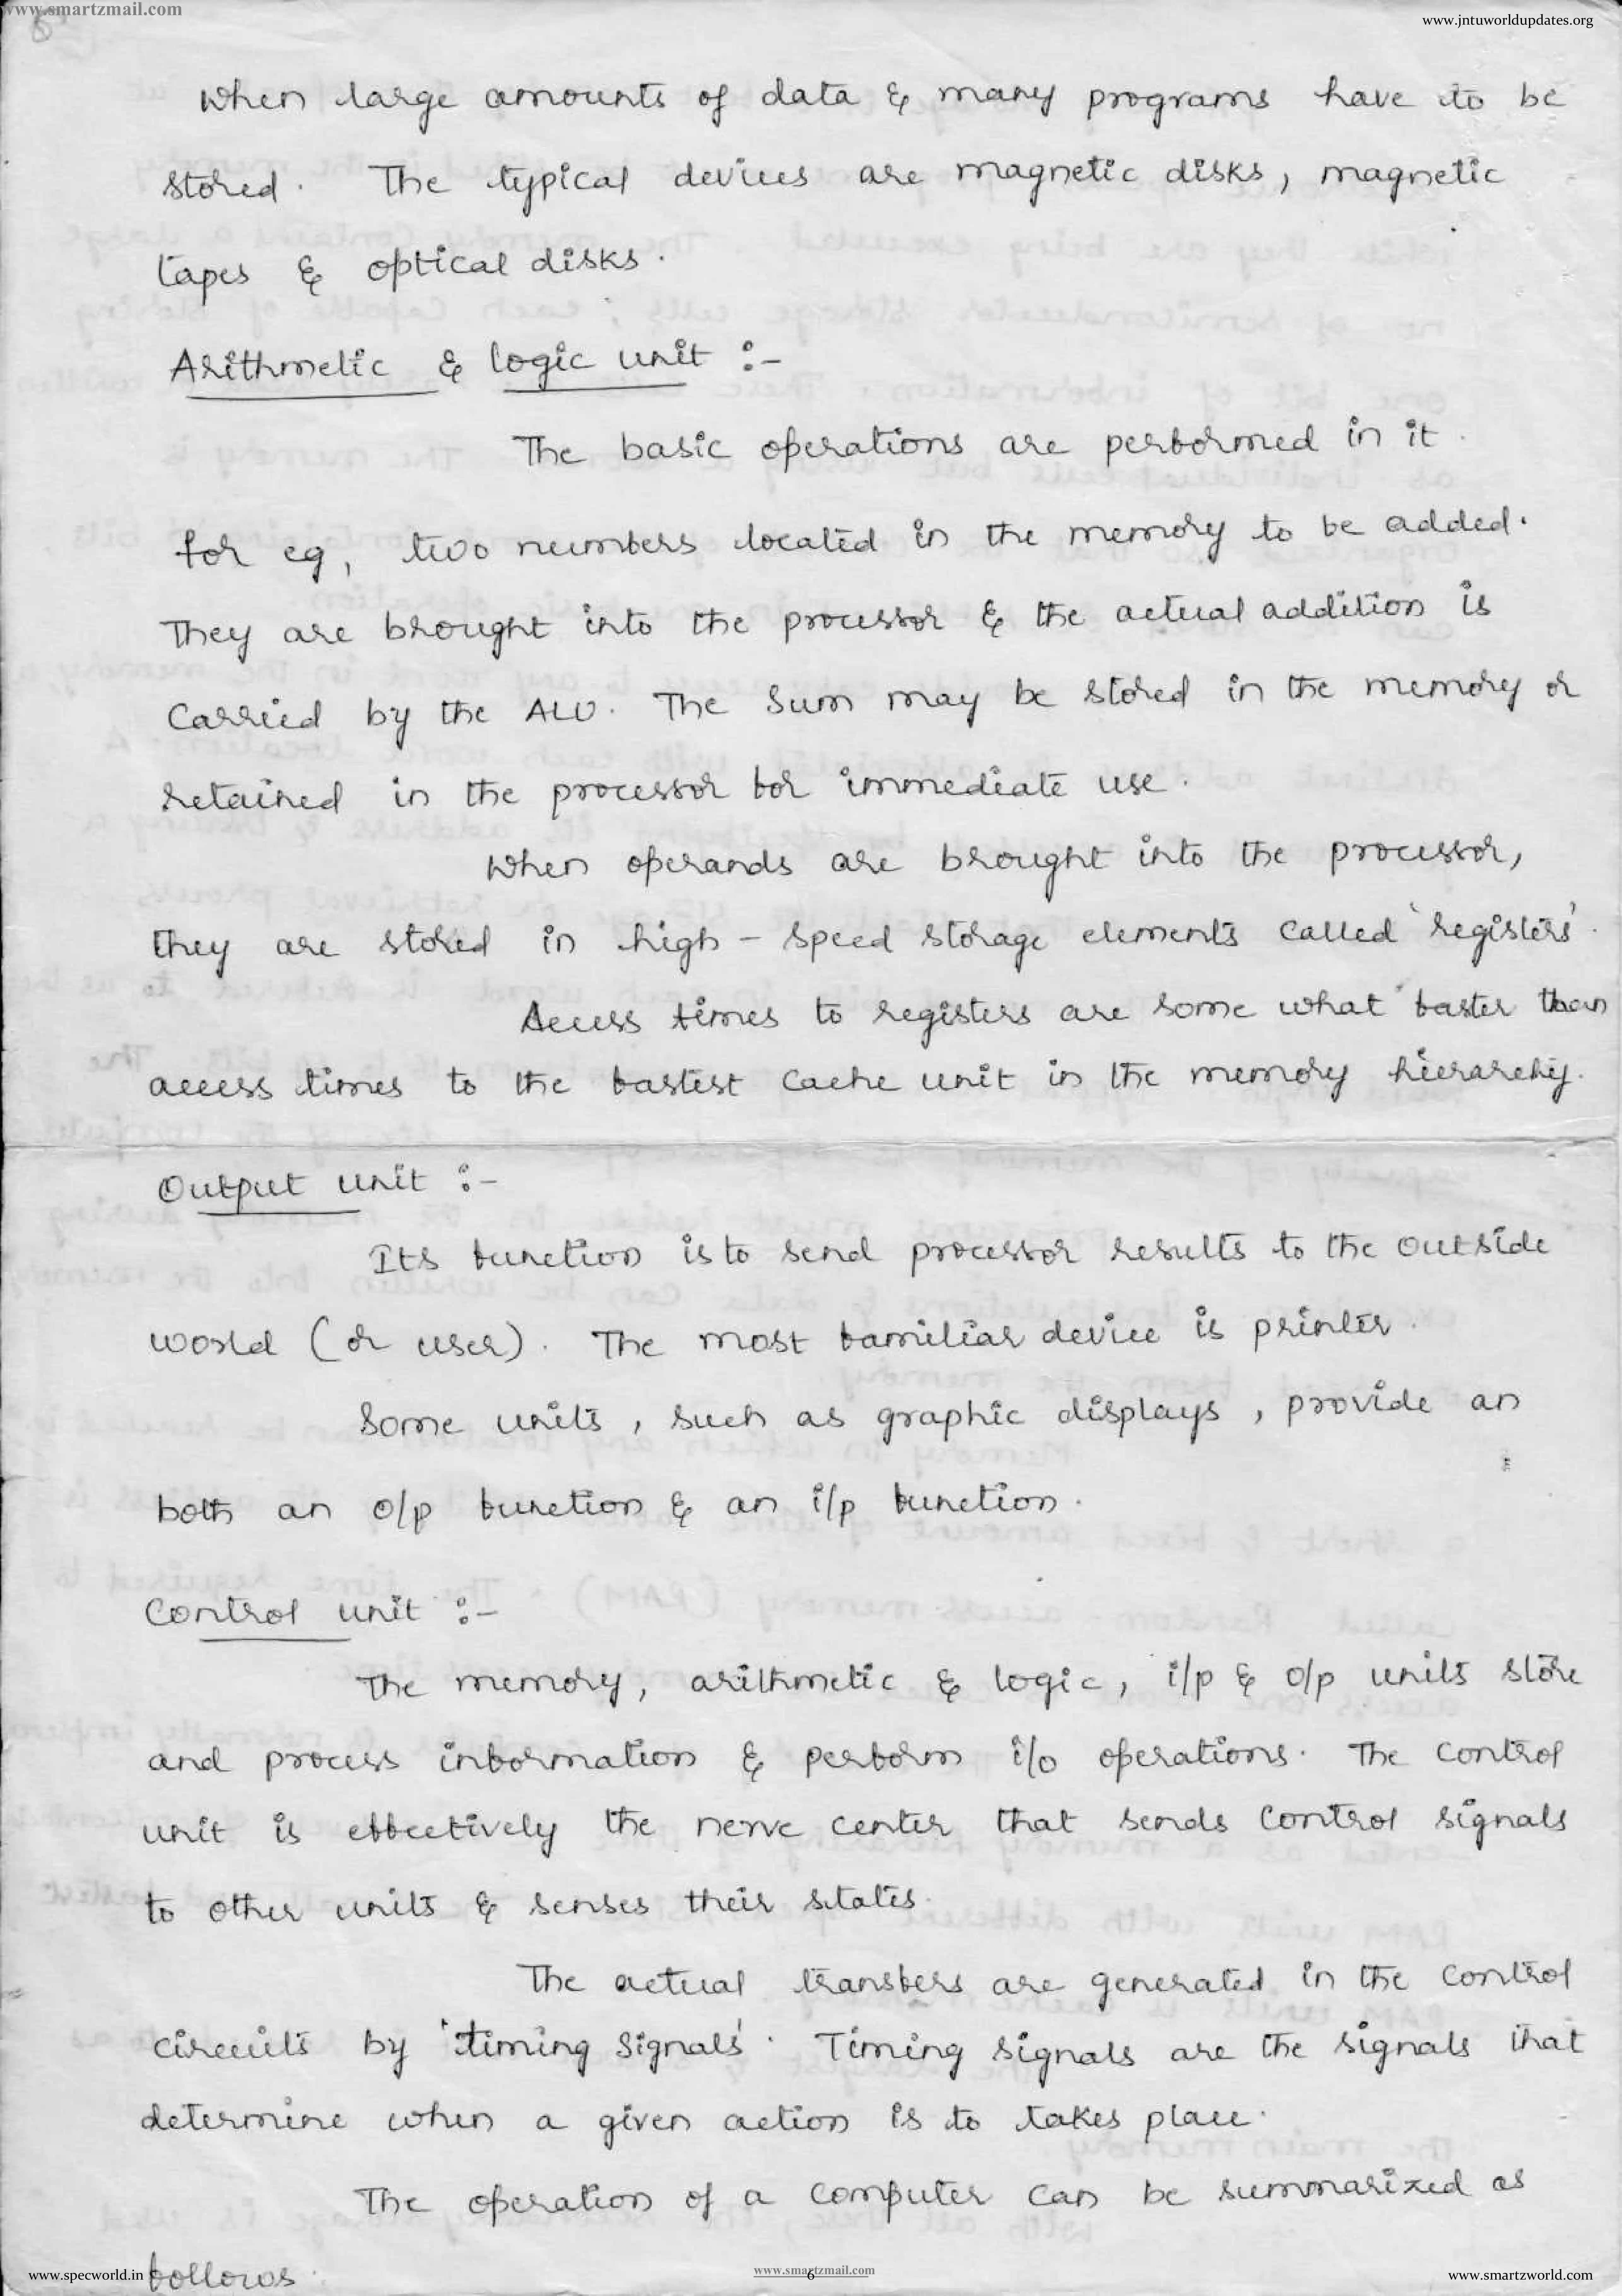 www.smartzmail.com
www.jntuworldupdates.org
8
When large amounts of data & many programs have to be
stored. The typical devices are magnetic disks, magnetic
tapes & optical disks.
Arithmetic & logic unit :-
The basic operations are performed in it.
for eg, two numbers located in the memory to be added.
They are brought into the processor & the actual addition is
carried by the ALU. The sum may be stored in the memory or
retained in the processor for immediate use.
When operands are brought into the processor,
they are stored in high - speed storage elements called 'registers'.
Access times to registers are some what faster than
access times to the fastest cache unit in the memory hierarchy.
Output unit :-
Its function is to send processor results to the outside
world (or user). The most familiar device is printer.
Some units, such as graphic displays, provide an
both an o/p function & an i/p function.
Control unit :-
The memory, arithmetic & logic, i/p & o/p units store
and process information & perform i/o operations. The control
unit is effectively the nerve center that sends control signals
to other units & senses their states.
The actual transfers are generated in the control
circuits by 'timing signals'. Timing signals are the signals that
determine when a given action is to takes place.
The operation of a computer can be summarized as
follows.
www.specworld.in
www.smartzmail.com
6
www.smartzworld.com